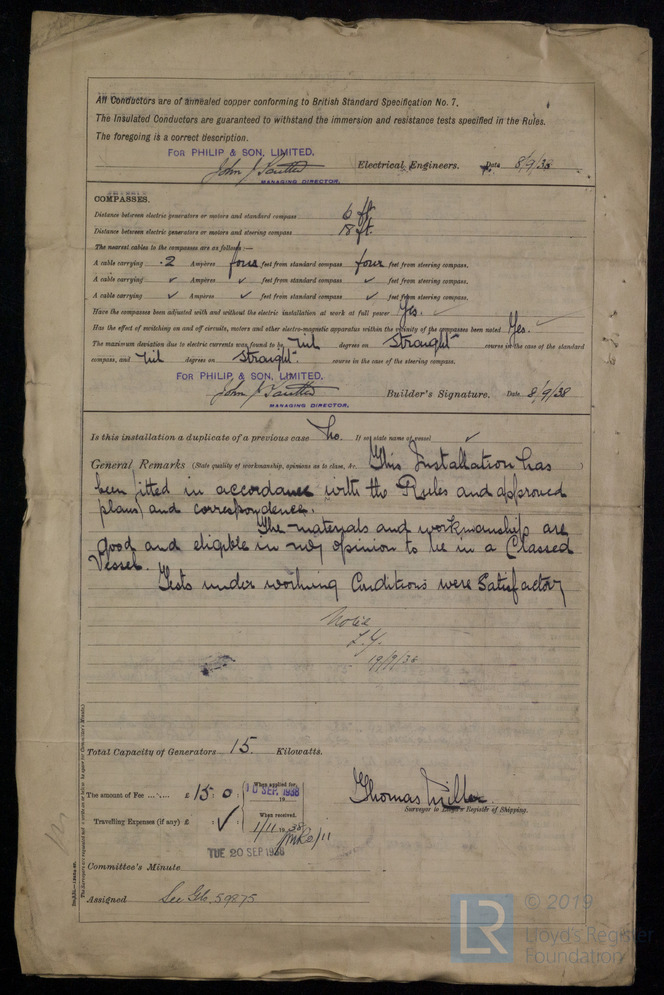 All Conductors are of annealed copper conforming to British Standard Specification No. 7.
The Insulated Conductors are guaranteed to withstand the immersion and resistance tests specified in the Rules.
The foregoing is a correct description.
FOR PHILIP & SON, LIMITED.
John J Electrical Engineers. Date 8/9/38
MANAGING DIRECTOR.
COMPASSES.
Distance between electric generators or motors and standard compass 6 ft.
Distance between electric generators or motors and steering compass 18 ft.
The nearest cables to the compasses are as follows:—
A cable carrying .2 Ampères four feet from standard compass four feet from steering compass.
A cable carrying ✓ Ampères ✓ feet from standard compass ✓ feet from steering compass.
A cable carrying ✓ Ampères ✓ feet from standard compass ✓ feet from steering compass.
Have the compasses been adjusted with and without the electric installation at work at full power Yes. ✓
Has the effect of switching on and off circuits, motors and other electro-magnetic apparatus within the vicinity of the compasses been noted Yes. ✓
The maximum deviation due to electric currents was found to be nil degrees on Straight course in the case of the standard
compass, and nil degrees on Straight course in the case of the steering compass.
FOR PHILIP & SON, LIMITED.
John J Builder's Signature. Date 8/9/38
MANAGING DIRECTOR.
Is this installation a duplicate of a previous case No. If so, state name of vessel ✓
General Remarks (State quality of workmanship, opinions as to class, &c. This Installation has
been fitted in accordance with the Rules and approved
plans and correspondence.
The materials and workmanship are
good and eligible in my opinion to be in a Classed
Vessel.
Tests under working Conditions were Satisfactory
Noted
19/9/38
Total Capacity of Generators 15. Kilowatts.
The amount of Fee ... £ 15 : 0 : When applied for,
10 SEP. 1938
Thomas Miller.
Surveyor to Lloyd's Register of Shipping.
Travelling Expenses (if any) £ : ✓ : When received,
1/11 1938
TUE 20 SEP 1938
Committee's Minute
Assigned See Gls. 59875
LR
© 2019
Lloyd's Register
Foundation